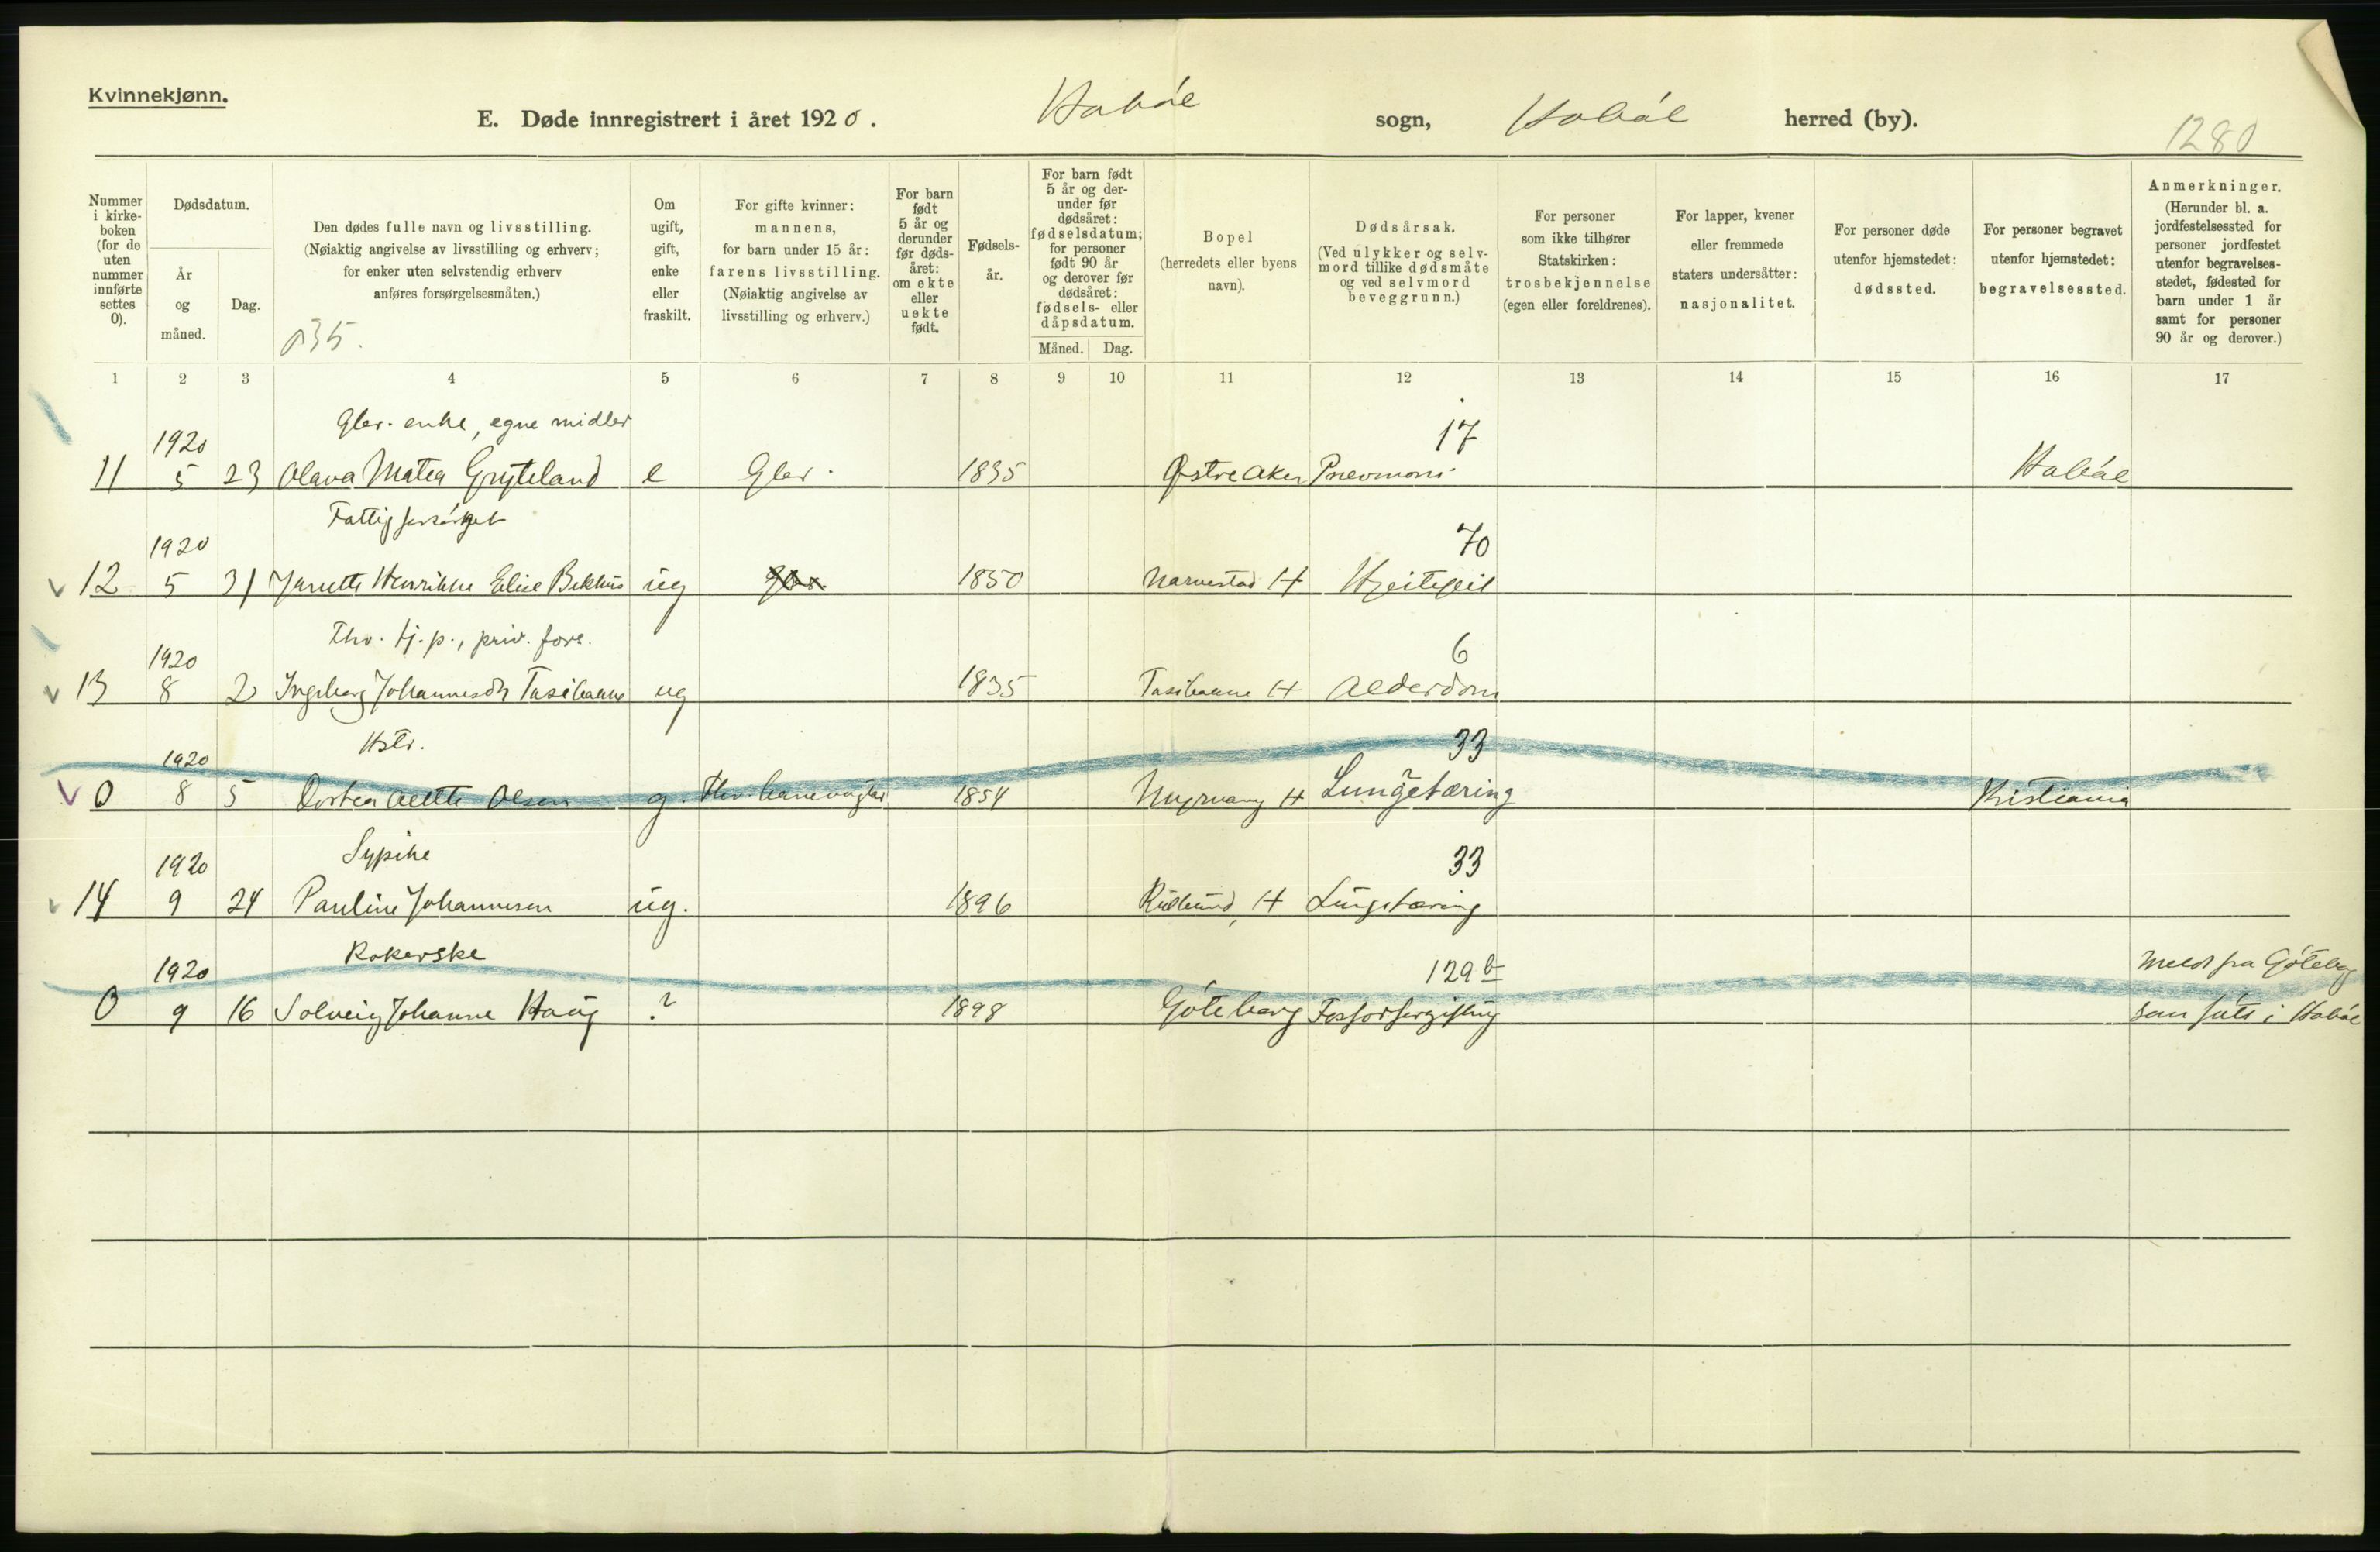 Kvinnekjønn.
E. Døde innregistrert i året 1920. Hobøl sogn, Hobøl herred (by).
1280
Nummer i kirke-boken (for de uten nummer innførte settes 0).
Dødsdatum.
År og måned.
Dag.
Den dødes fulle navn og livsstilling.
(Nøiaktig angivelse av livsstilling og erhverv;
for enker uten selvstendig erhverv
anføres forsørgelsesmåten.)
035.
Om ugift, gift, enke eller fraskilt.
For gifte kvinner:
mannens,
for barn under 15 år:
farens livsstilling.
(Nøiaktig angivelse av
livsstilling og erhverv.)
For barn født 5 år og derunder før døds-året: om ekte eller uekte født.
Fødsels-år.
For barn født 5 år og der-under før dødsåret: fødselsdatum; for personer født 90 år og derover før dødsåret: fødsels- eller dåpsdatum.
Måned. Dag.
Bopel
(herredets eller byens
navn).
Dødsårsak.
(Ved ulykker og selv-
mord tillike dødsmåte
og ved selvmord
beveggrunn.)
For personer
som ikke tilhører
Statskirken:
trosbekjennelse
(egen eller foreldrenes).
For lapper, kvener
eller fremmede
staters undersåtter:
nasjonalitet.
For personer døde
utenfor hjemstedet:
dødssted.
For personer begravet
utenfor hjemstedet:
begravelsessted.
Anmerkninger.
(Herunder bl. a.
jordfestelsessted for
personer jordfestet
utenfor begravelses-
stedet, fødested for
barn under 1 år
samt for personer
90 år og derover.)
1 2 3 4 5 6 7 8 9 10 11 12 13 14 15 16 17
Gbr. enke, egne midler
1920 17
11 5 23 Olava Matea Gryteland e Gbr. 1835 Østre Aker Pneumoni Hobøl
Fattigforsørget
1920 70
12 5 31 Henrikke Elise ug Gbr. 1850 H Hjertefeil
Fhv. tj.p., priv. fors.
1920 6
13 8 2 Ingeborg Johannesdtr ug 1835 H Alderdom
Hstr.
1920 33
0 8 5 Dortea Olsen g. Fhv. banevogter 1854 H Lungetæring Kristiania
Sypike
1920 33
14 9 24 Pauline Johannesen ug. 1896 H Lungetæring
Kokerske
1920 129b Meldt fra Göteborg
0 9 16 Solveig Johanne Haug ? 1898 Göteborg Fosforforgiftning som født i Hobøl